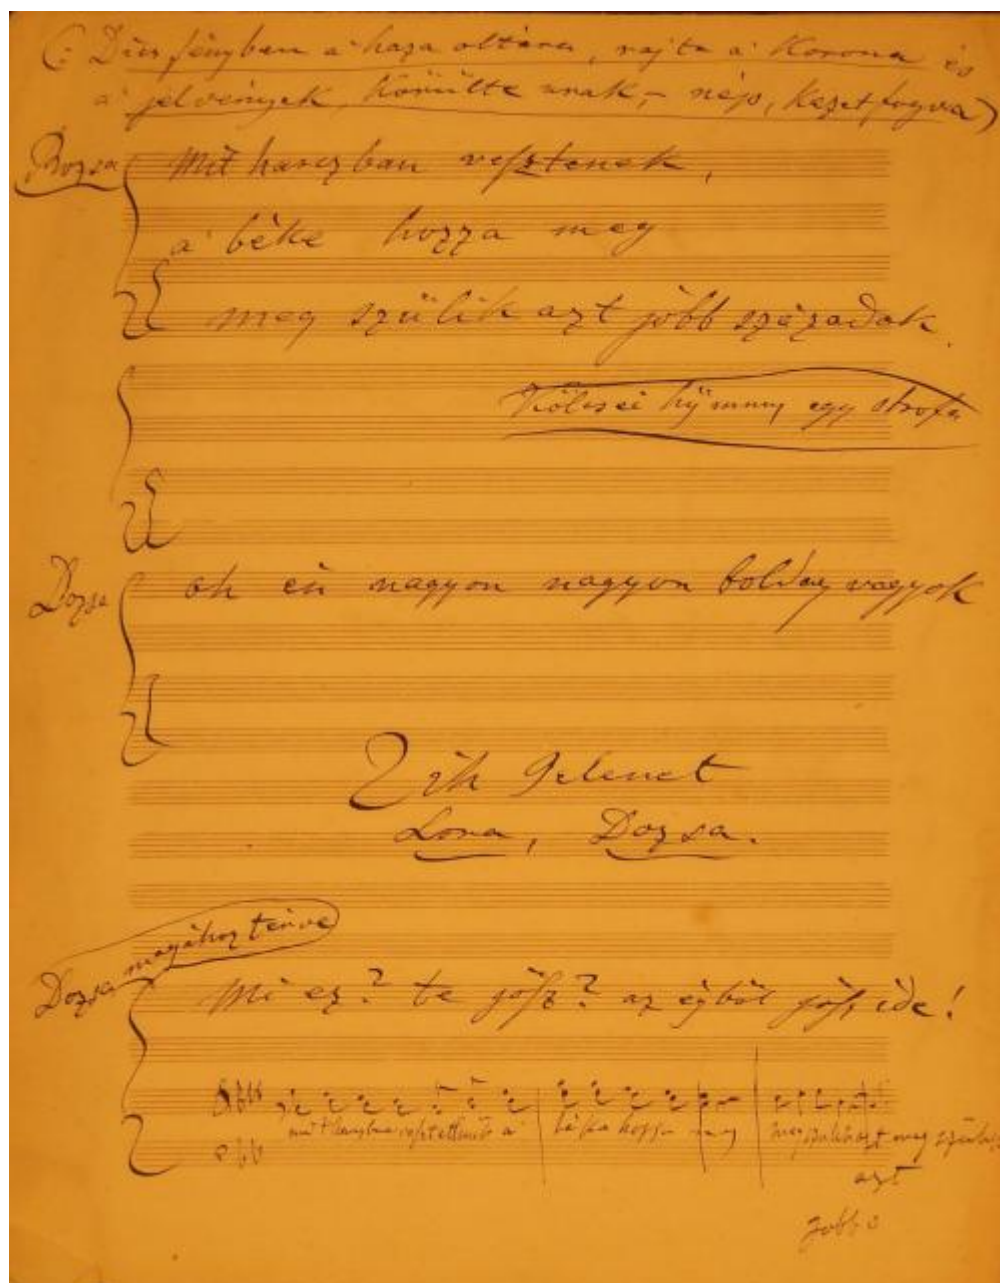 (: Dicsfényben a' haza oltára, rajta a' Korona és
a' jelvények, körülte urak, - nép, kezetfogva)
Dozsa
Mit harczban vesztenek,
a' béke hozza meg
meg szülik azt jobb századok.
Kölcsei hymny egy strofa
Dozsa
oh én nagyon nagyon boldog vagyok
2ik Jelenet
Lora, Dozsa.
magához térve
Dozsa
Mi ez? te jösz? az égböl jösz ide!
mit harczban vesztettünk a béke hozza meg meg szüli
azt
jobb